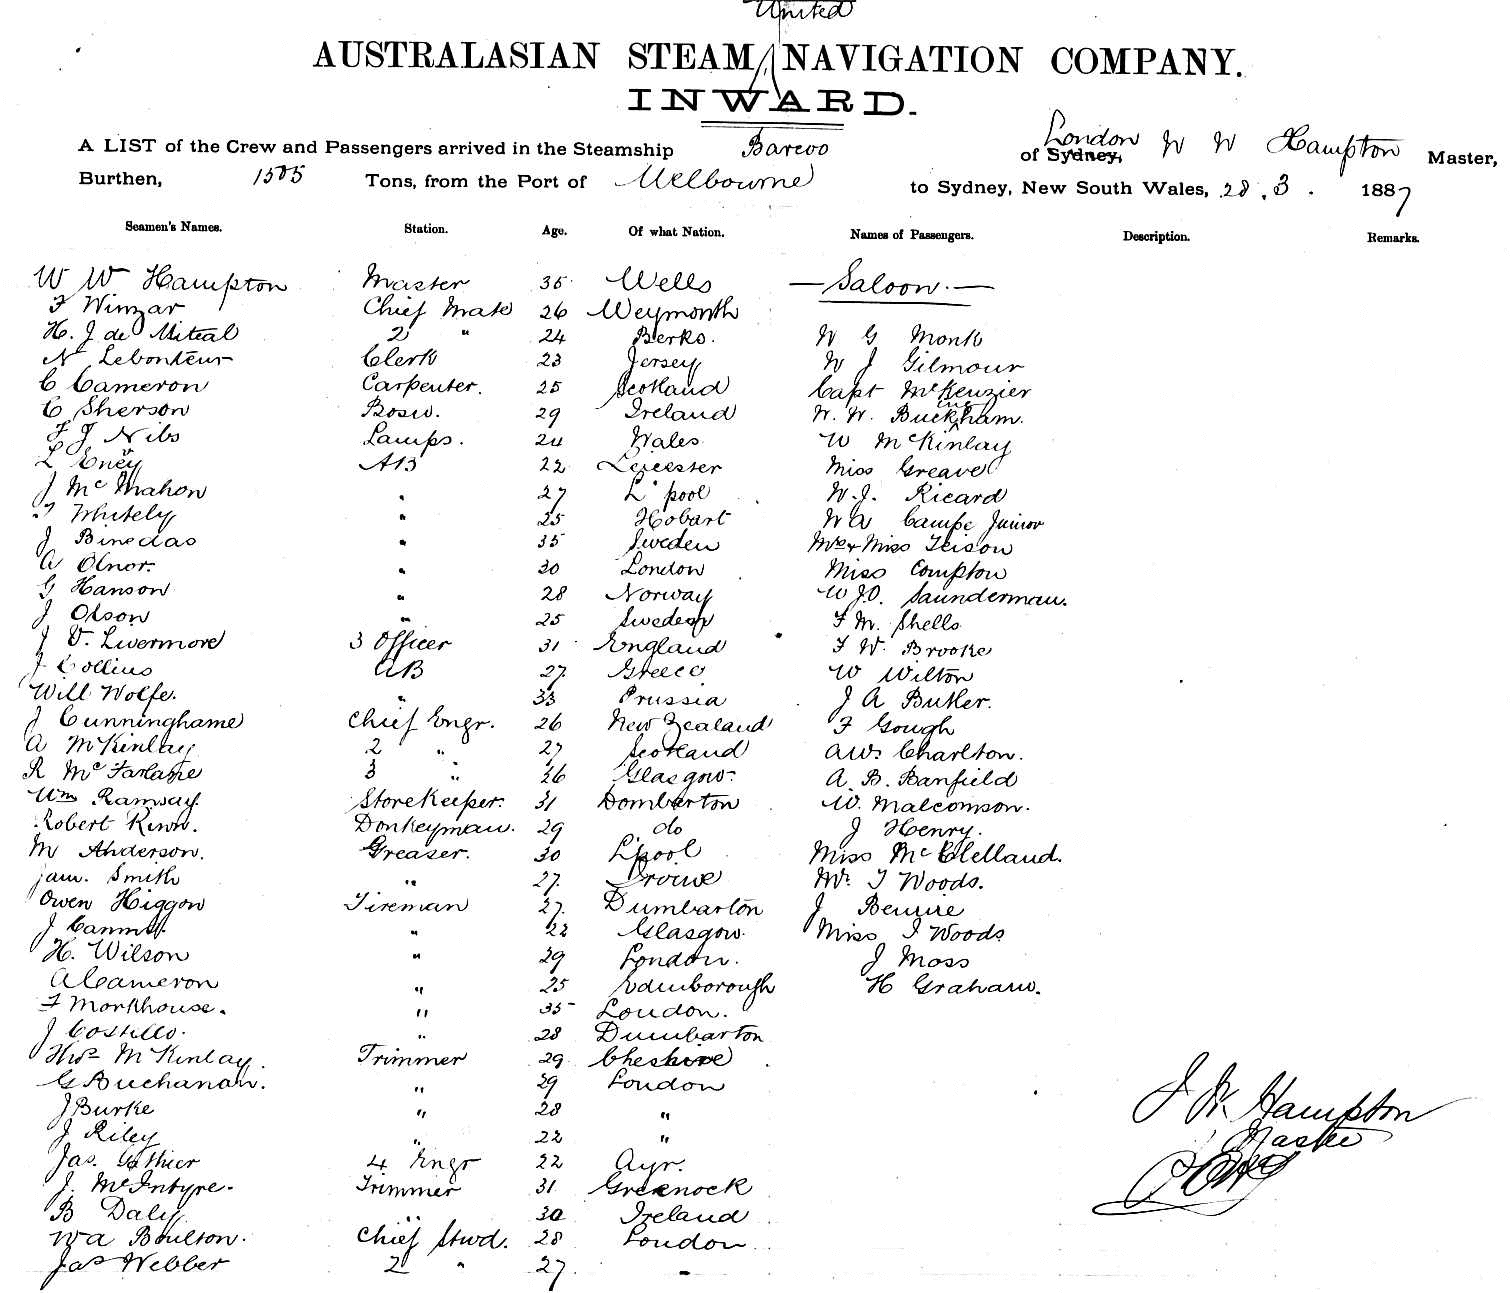 United
AUSTRALASIAN STEAM NAVIGATION COMPANY.
INWARD.
A LIST of the Crew and Passengers arrived in the Steamship Barcoo of Sydney, London W W Hampton Master,
Burthen, 1505 Tons, from the Port of Melbourne to Sydney, New South Wales, 28.3. 1887
Seamen's Names. Station. Age. Of what Nation. Names of Passengers. Description. Remarks.
W W Hampton Master 35 Wells — Saloon. —
F Winzar Chief Mate 26 Weymonth
H. J de Miteal 2 " 24 Berks. W G Monk
N Lebonteur Clerk 23 Jersey W J Gilmour
C Cameron Carpenter. 25 Scotland Capt McKenzier
C Sherson Bosw. 29 Ireland W. W. Buckingham.
F J Nibs Lamps. 24 Wales W McKinlay
L Eney AB 22 Leicester Miss Greave
J McMahon " 27 L'pool W. J. Ricard
T Whitely " 25 Hobart W A Campe Junior
J Binedas " 35 Sweden Mrs & Miss Teison
A Olnor. " 30 London Miss Compton
G Hanson " 28 Norway W J O. Saunderman.
J Olson " 25 Sweden F M. Shells
J V. Livermore 3 Officer 31 England F W. Brooke
J Collins AB 27 Greece W Wilton
Will Wolfe. " 33 Prussia J A Butler.
J Cunninghame Chief Engr. 26 New Zealand F Gough
A McKinlay 2 " 27 Scotland A W. Charlton.
R McFarlane 3 " 26 Glasgow. A. B. Banfield
Wm Ramsay. Storekeeper. 31 Dombarton W. Malcomson.
Robert Kinn. Donkeyman. 29 do J Henry.
M Anderson. Greaser. 30 L'pool Miss McClelland.
Jam. Smith " 27. Mr. T Woods.
Owen Higgon Fireman 27. Dumbarton J
J " 22 Glasgow. Miss J Woods
H. Wilson " 29 London. J Moss
A Cameron " 25 Edinborough H Graham.
F Monkhouse. " 35 London.
J Costello. " 28 Dumbarton
Thos McKinlay. Trimmer 29 Cheshire
G Buchanan. " 29 London
J Burke " 28 "
J Riley " 22 " J W. Hampton
Jas. 4 Engr 22 Ayr. Master
J. McIntyre. Trimmer 31 Greenock
B Daly " 30 Ireland
W A Boulton. Chief Stwd. 28 London
Jas Webber 2 " 27 -